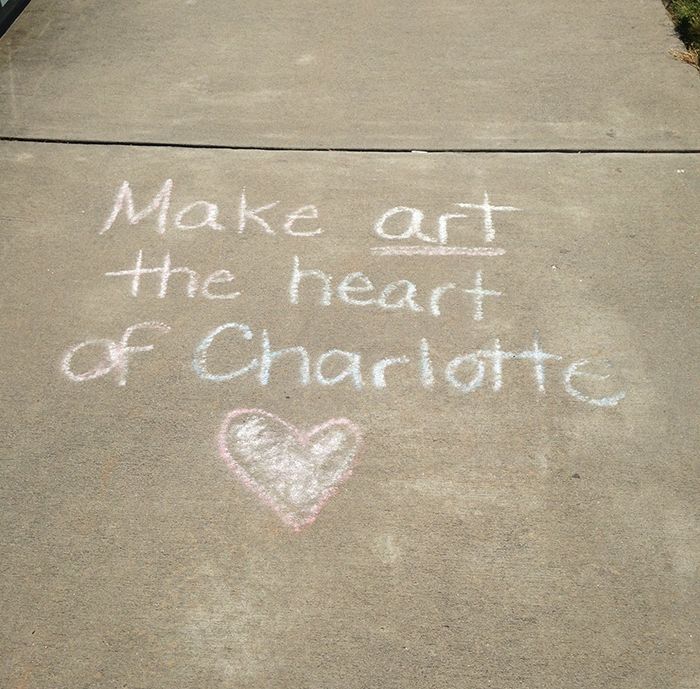 Make art
the heart
of Charlotte